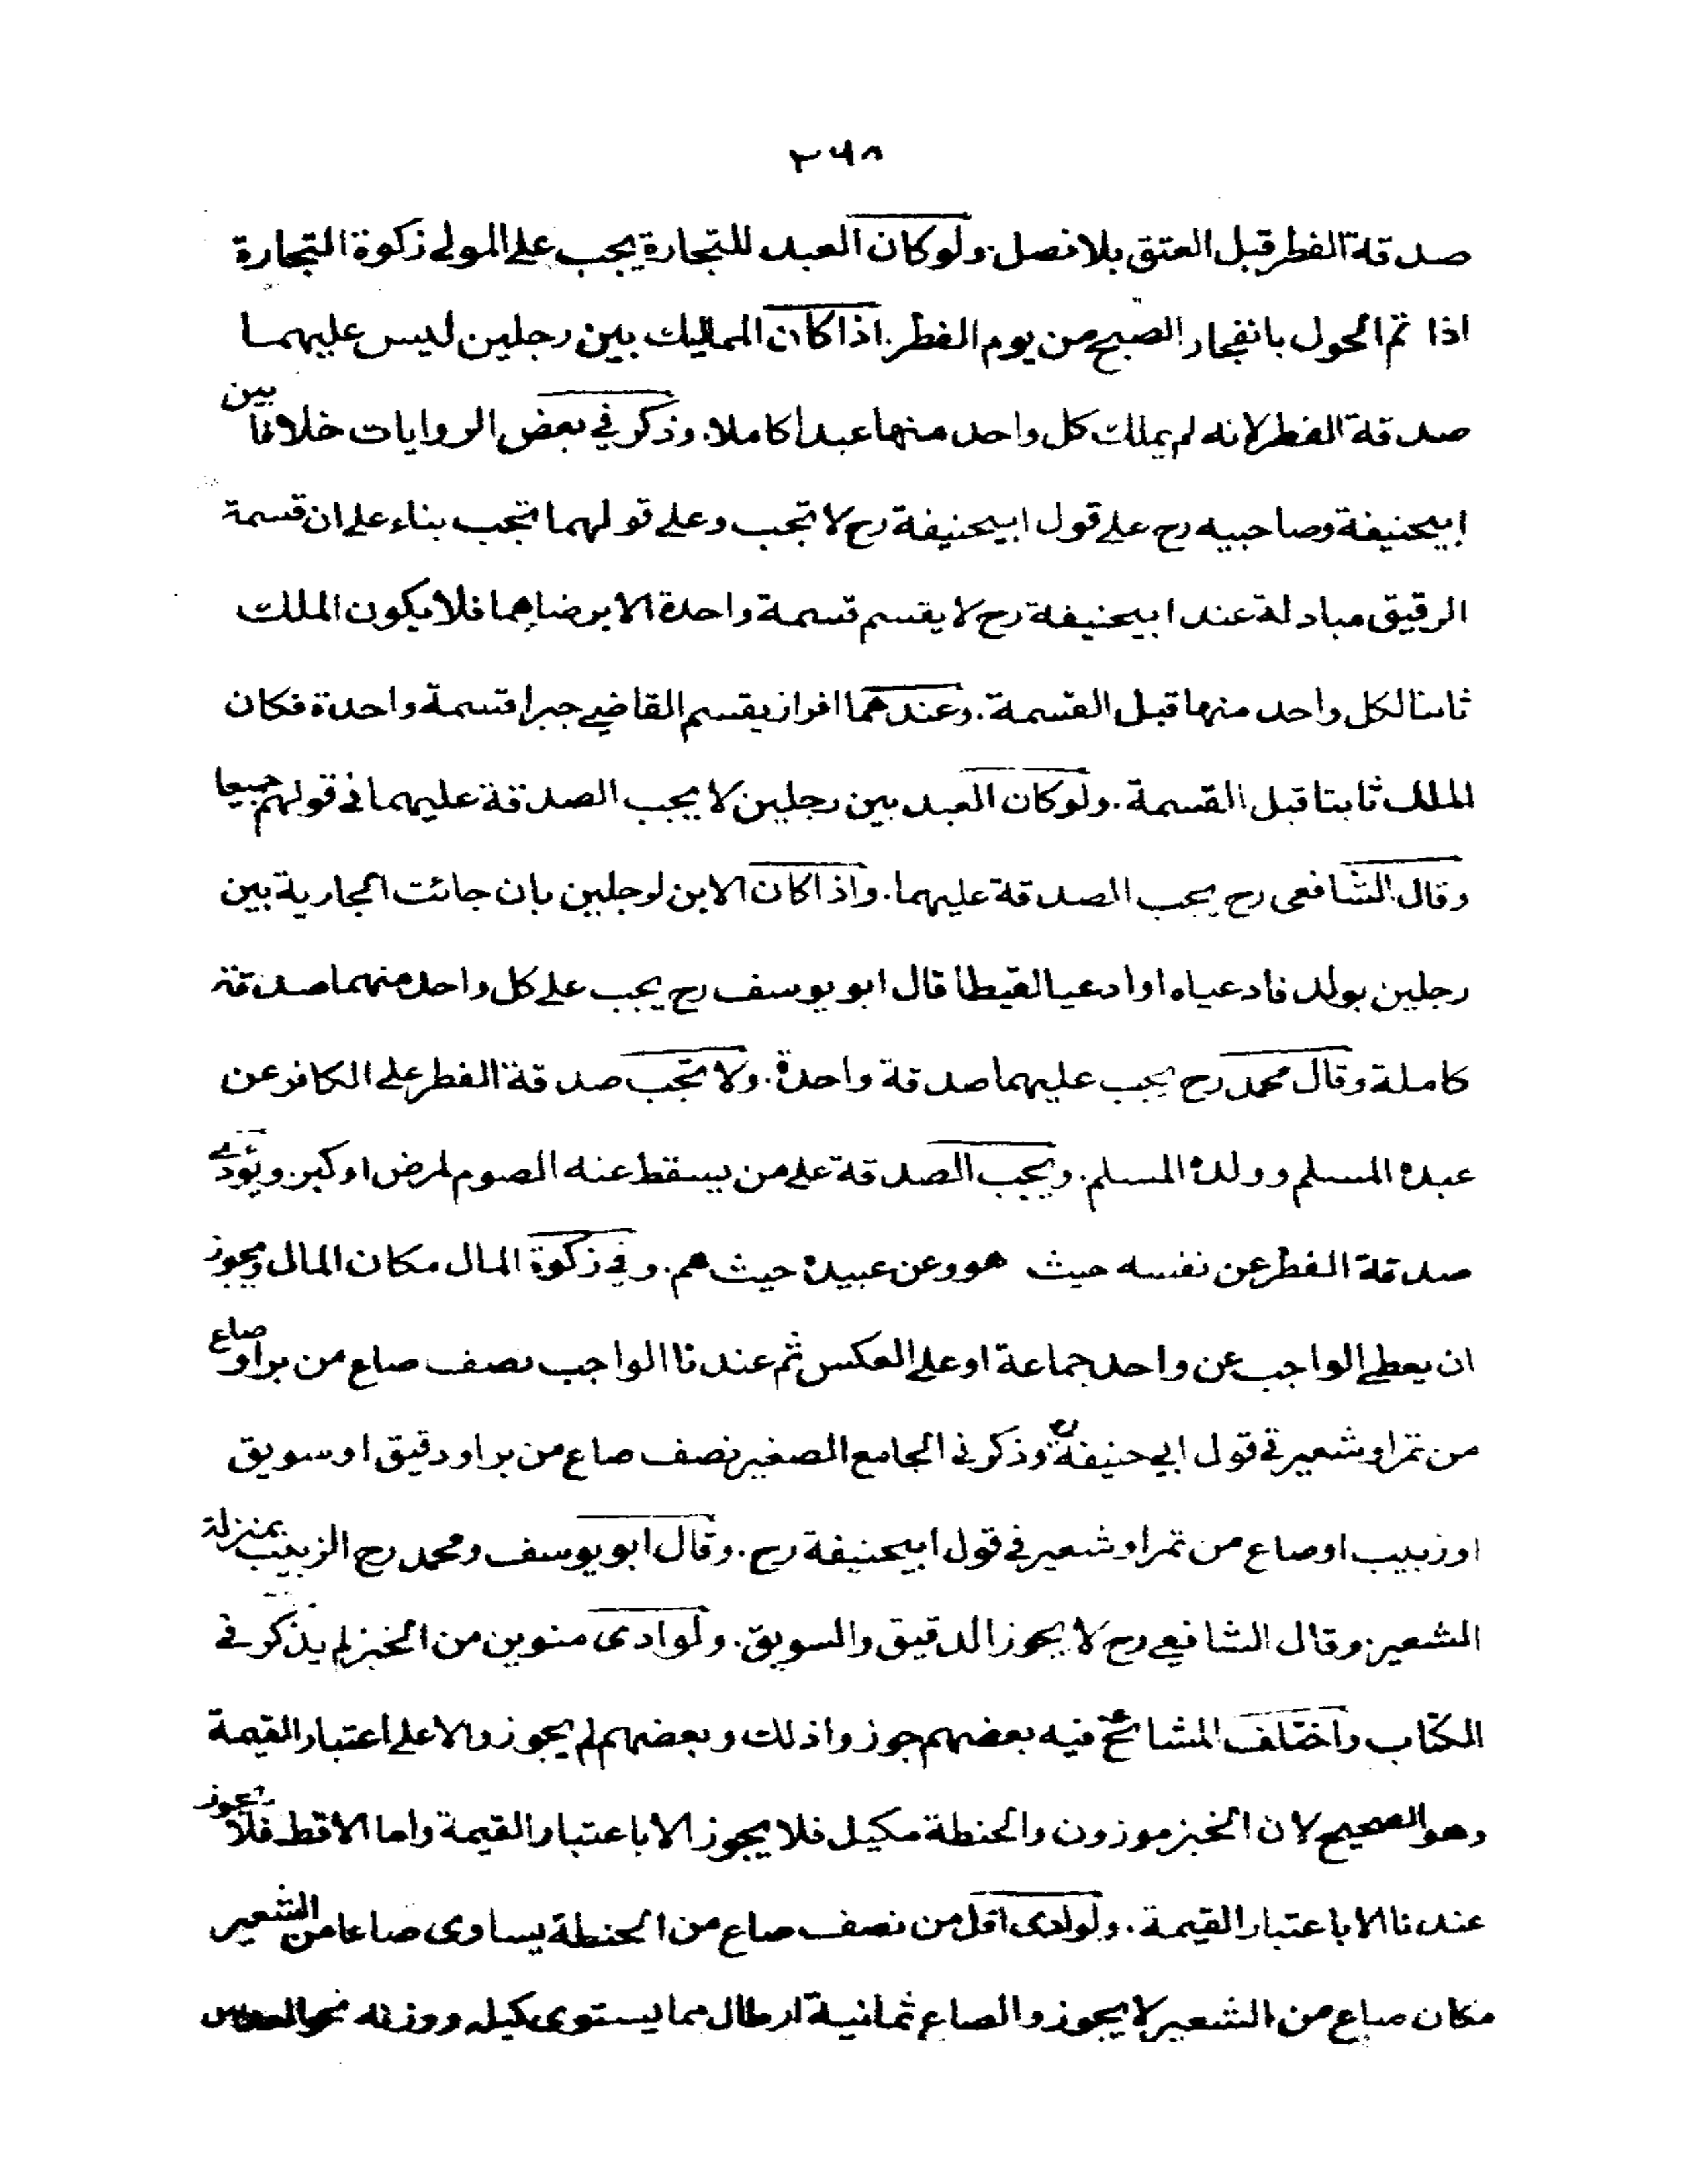 ٢٦٨
صدقة الفطر قبل العتق بلا فصل. ولو كان العبد للتجارة يجب على المولى زكوة التجارة
اذا تم الحول بانفجار الصبح من يوم الفطر. اذا كان المماليك بين رجلين ليس عليهما
صدقة الفطر لانه لم يملك كل واحد منهما عبدا كاملا. وذكر في بعض الروايات خلافا بين
ابيحنيفة وصاحبيه رح على قول ابيحنيفة رح لا تجب وعلى قولهما تجب بناء على ان قسمة
الرقيق مبادلة عند ابيحنيفة رح لا يقسم قسمة واحدة الا برضاهما فلا يكون الملك
ثابتا لكل واحد منهما قبل القسمة. وعندهما افراز يقسم القاضي جبرا قسمة واحدة فكان
الملك ثابتا قبل القسمة. ولو كان العبد بين رجلين لا يجب الصدقة عليهما في قولهم جميعا
وقال الشافعى رح يجب الصدقة عليهما. واذا كان الابن لرجلين بان جائت الجارية بين
رجلين بولد فادعياه او ادعيا لقيطا قال ابو يوسف رح يجب على كل واحد منهما صدقة
كاملة وقال محمد رح يجب عليهما صدقة واحدة. ولا تجب صدقة الفطر على الكافر عن
عبده المسلم وولده المسلم. ويجب الصدقة على من يسقط عنه الصوم لمرض او كبر. ويؤدي
صدقة الفطر عن نفسه حيث هو وعن عبيده حيث هم. وفي زكوة المال مكان المال ويجوز
ان يعطى الواجب عن واحد جماعة او على العكس ثم عندنا الواجب نصف صاع من بر او صاع
من تمر او شعير في قول ابي حنيفة رح وذكر في الجامع الصغير نصف صاع من بر او دقيق او سويق
او زبيب او صاع من تمر او شعير في قول ابيحنيفة رح. وقال ابو يوسف ومحمد رح الزبيب بمنزلة
الشعير. وقال الشافعي رح لا يجوز الدقيق والسويق. ولو ادى منوين من الخبز لم يذكر في
الكتاب واختلف المشائخ فيه بعضهم جوزوا ذلك وبعضهم لم يجوزوا الا على اعتبار القيمة
وهو الصحيح لان الخبز موزون والحنطة مكيل فلا يجوز الا باعتبار القيمة واما الاقط فلا يجوز
عندنا الا باعتبار القيمة. ولو ادى اقل من نصف صاع من الحنطة يساوى صاعا من الشعير
مكان صاع من الشعير لا يجوز والصاع ثمانية ارطال مما يستوى كيله ووزنه نحو العدس